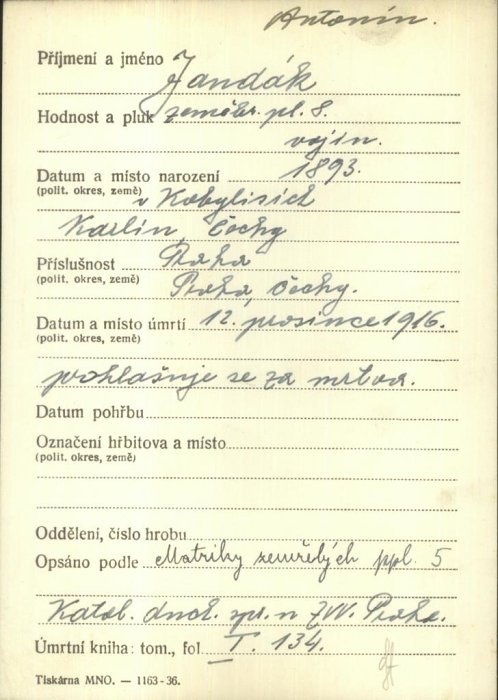 Antonín.
Příjmení a jméno Jandák
Hodnost a pluk zeměbr. pl. 8.
vojín.
Datum a místo narození 1893.
(polit. okres, země) v Kobylisích
Karlín, Čechy
Příslušnost Praha
(polit. okres, země) Praha, Čechy.
Datum a místo úmrtí 12. prosince 1916.
(polit. okres, země)
prohlašuje se za mrtva.
Datum pohřbu
Označení hřbitova a místo
(polit. okres, země)
Oddělení, číslo hrobu
Opsáno podle Matriky zemřelých ppl. 5
Katol. duch. spr. n ZVV. Praha.
Úmrtní kniha: tom., fol. I. 134.
Tiskárna MNO. — 1163-36.